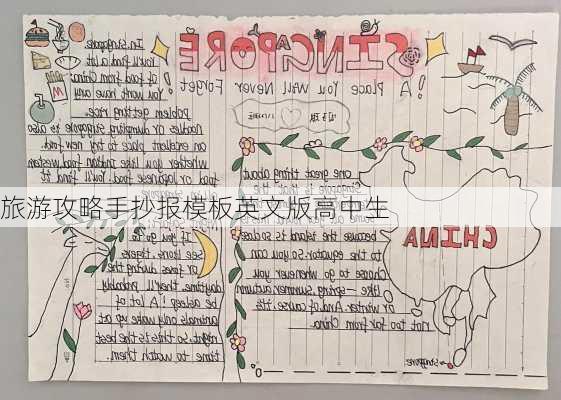 SINGAPORE
! A Place You Will Never Forget !
In Singapore
You'll find a lot
of food from China!
You won't have any
problem getting rice,
Noodles or dumpling. Singapore is also
an excellent place to try new food.
Whether you like Indian food, western
food or Japanese food, You'll find it
旅游攻略手抄报模板英文版高中生
If you go to
see lions, tigers
or foxes during the
daytime, they'll probably
be asleep! A lot of
animals only wake up at
night, so this is the best
time to watch them.
one great thing about
Singapore is that the
because the island is so close
to the equator. So you can
choose to go whenever you
like - spring, summer, autumn
or winter. And, of course, it's
not too far from China.
CHINA
Singapore